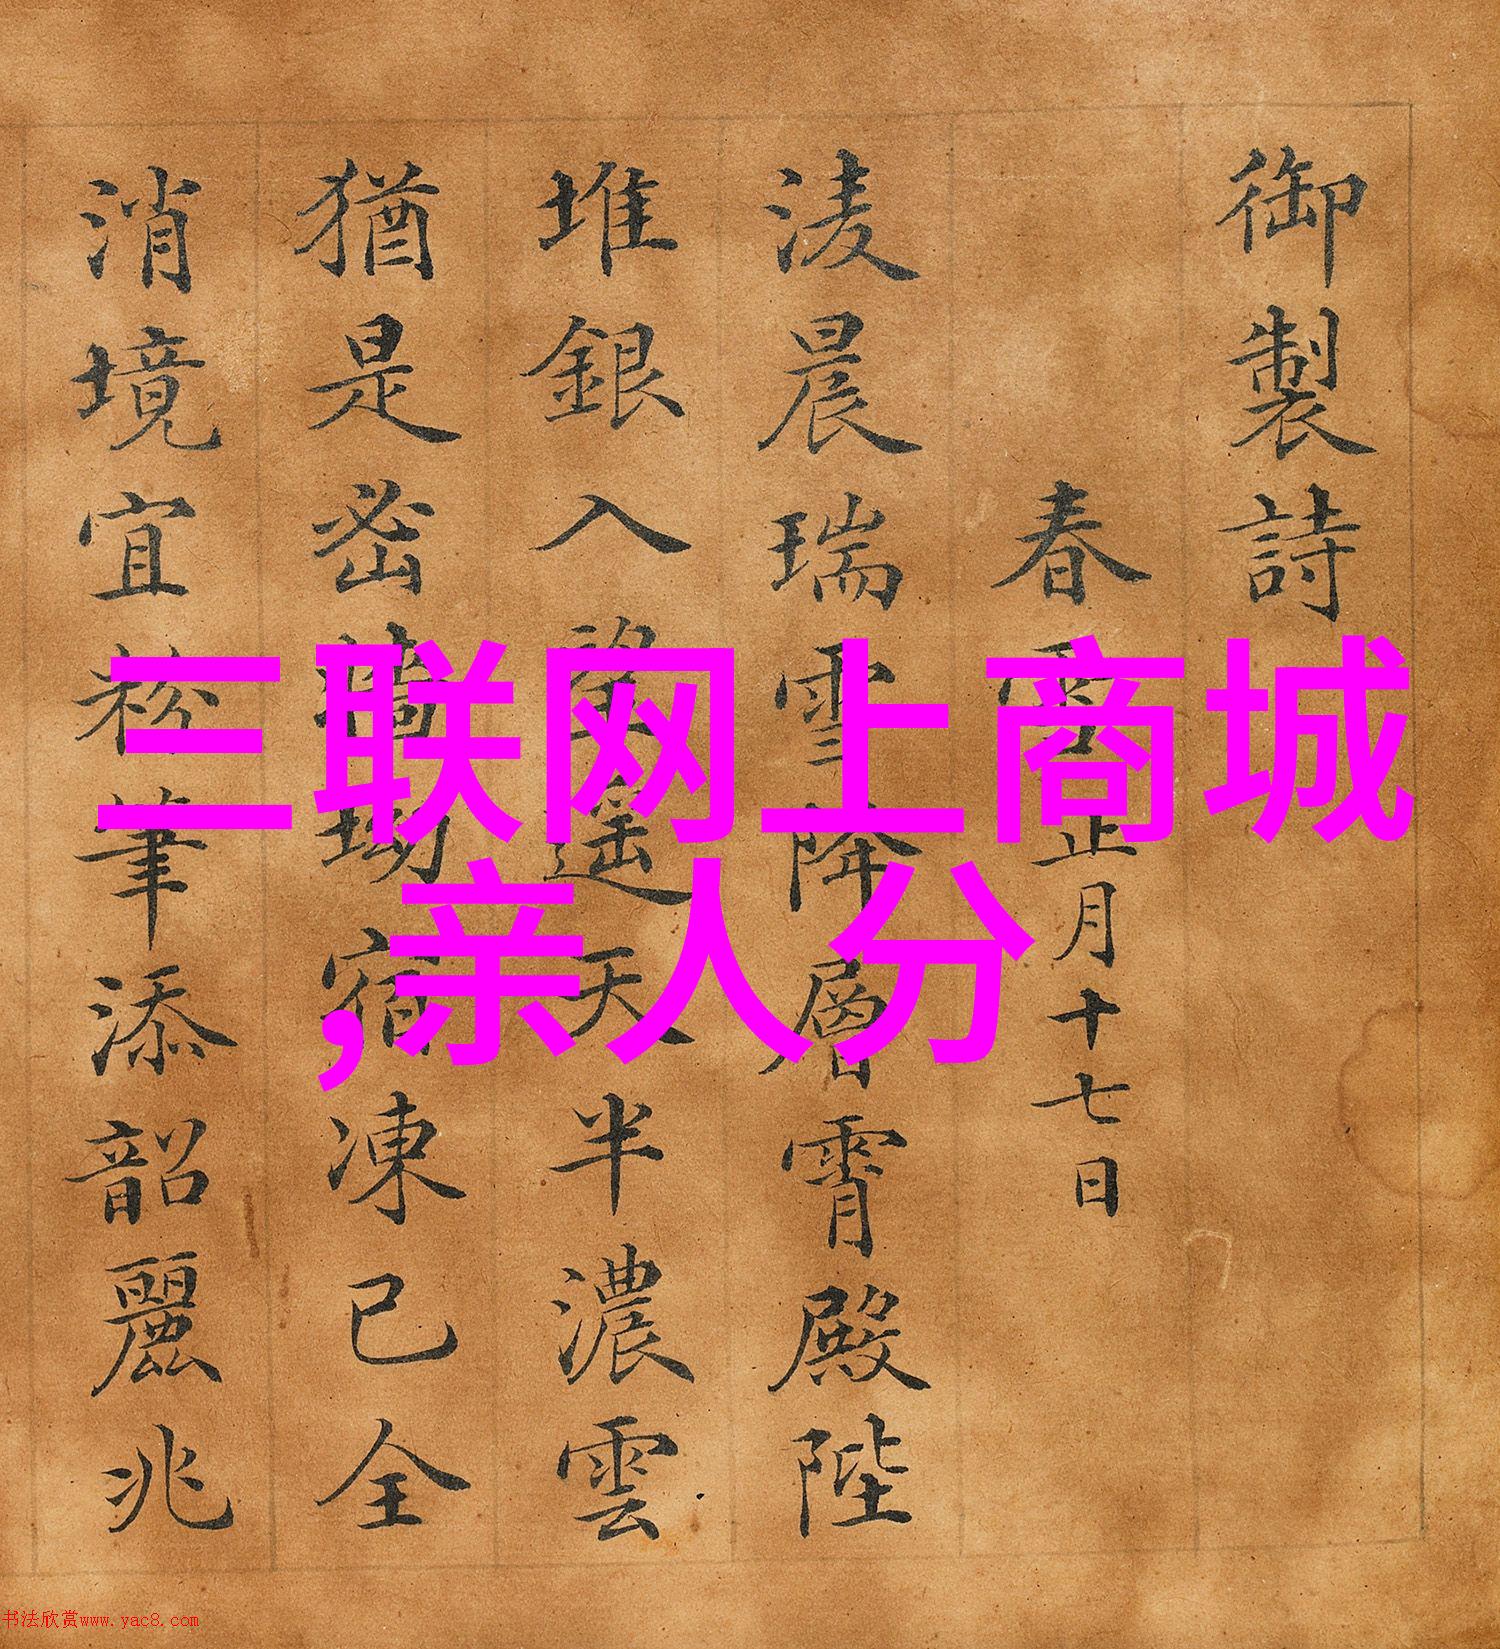 御製詩
春雪正月十七日
淩晨瑞雪降層霄殿陛
堆銀入望遙天半濃雲
猶是密牆坳宿凍已全
消境宜粉筆添韶麗兆
三联网上商城
,亲人分
书法欣赏www.yac8.com